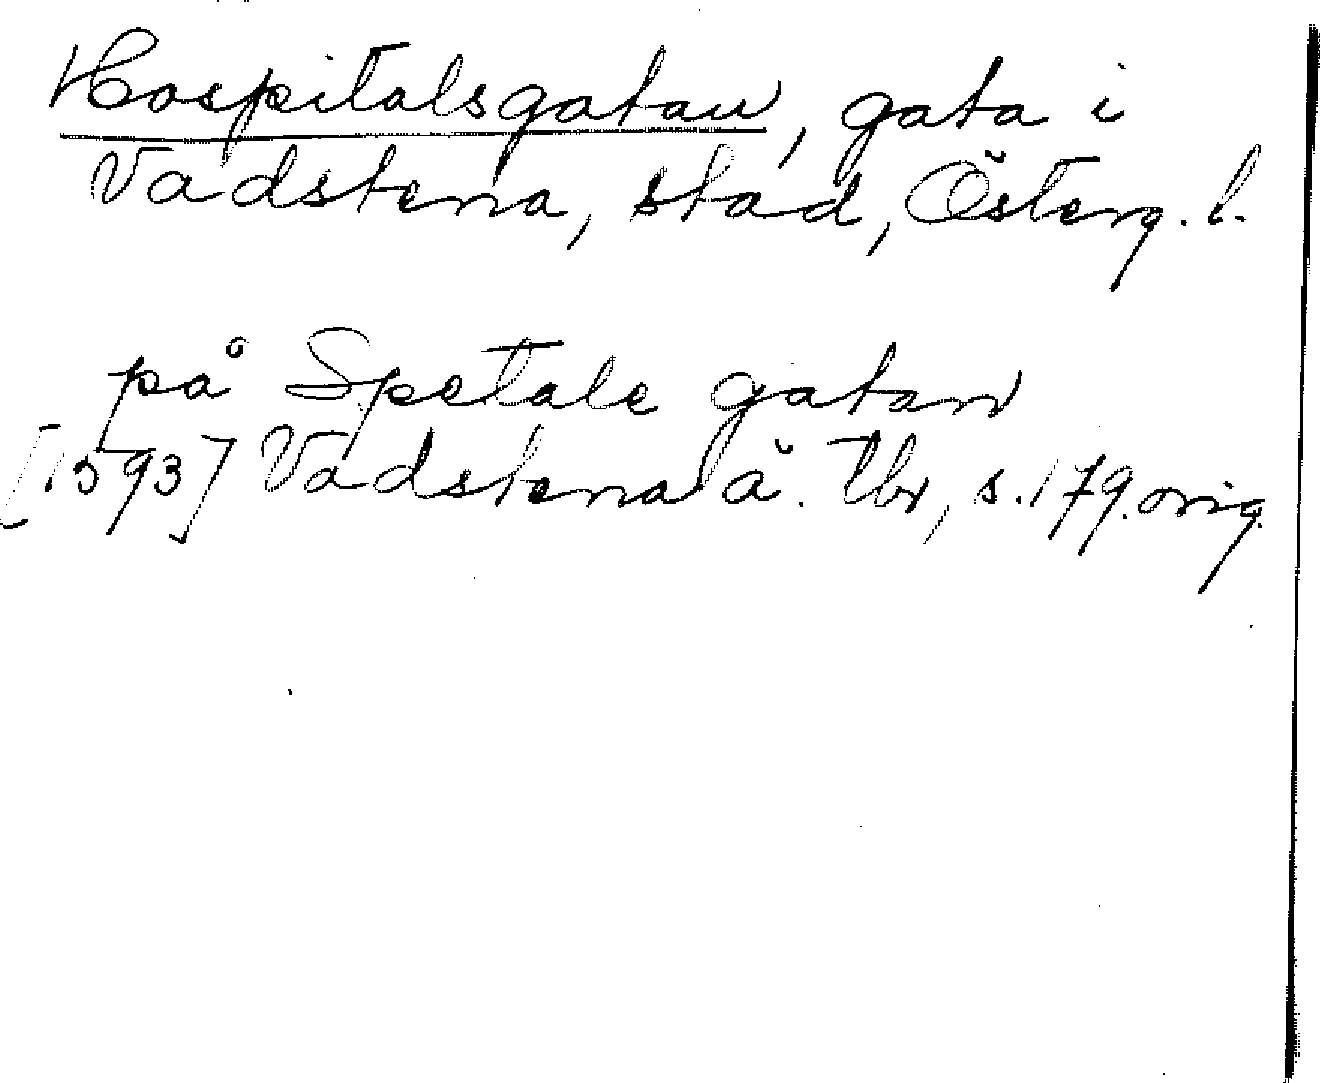 Hospitalsgatan, gata i
Vadstena, stad, Österg. l.
på Spetale gatan
[1593] Vadstena ä. tbr, s. 179. orig.